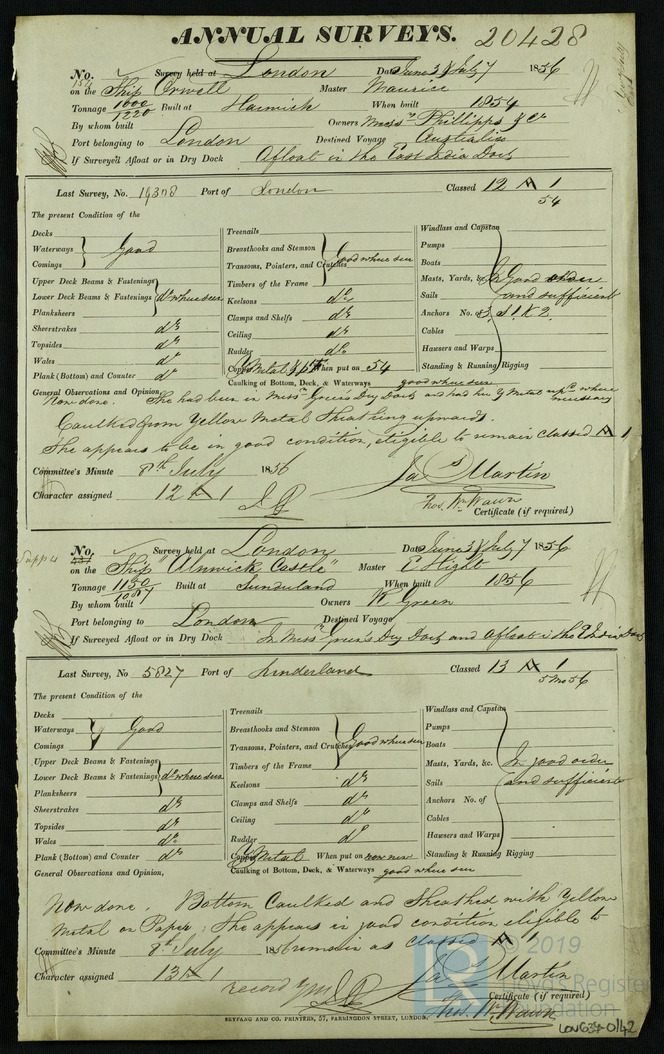 ANNUAL SURVEYS. 20428
No. 154 Survey held at London Date June 3 & July 7 1856
on the Ship Orwell Master Maurice
Tonnage 1000 1220 Built at Harwich When built 1854
By whom built Owners Messrs Phillipps & Co
Port belonging to London Destined Voyage Australia
If Surveyed Afloat or in Dry Dock Afloat in the East India Dock
Last Survey, No. 19378 Port of London Classed 12 A 1
54
The present Condition of the
Decks
Waterways Good
Comings
Upper Deck Beams & Fastenings
Lower Deck Beams & Fastenings do where seen
Planksheers
Sheerstrakes do
Topsides do
Wales do
Plank (Bottom) and Counter do
Treenails
Breasthooks and Stemson Good where seen
Transoms, Pointers, and Crutches
Timbers of the Frame
Keelsons do
Clamps and Shelfs do
Ceiling do
Rudder do
Copper Y Metal When put on 54
Caulking of Bottom, Deck, & Waterways good where seen
Windlass and Capstan
Pumps
Boats
Masts, Yards, &c. In Good order
Sails and sufficient
Anchors No. of 3. S 1. K 2.
Cables
Hawsers and Warps
Standing & Running Rigging
General Observations and Opinion,
Now done. She had been in Messrs Green's Dry Dock and had her Y Metal where necessary
Caulked from Yellow Metal Sheathing upwards.
She appears to be in good condition, eligible to remain classed A 1
Committee's Minute 8th July 1856
Jas Martin
Character assigned 12 A 1
Thos. Wm Wawn
Certificate (if required)
Supp 4
No. Survey held at London Date June 3 & July 7 1856
on the Ship "Alnwick Castle" Master E Hight
Tonnage 1150 1087 Built at Sunderland When built 1856
By whom built Owners R Green
Port belonging to London Destined Voyage
If Surveyed Afloat or in Dry Dock In Messrs Green's Dry Dock and Afloat in the E India Dock
Last Survey, No 5827 Port of Sunderland Classed 13 A 1
5 Mo 56
The present Condition of the
Decks
Waterways Good
Comings
Upper Deck Beams & Fastenings
Lower Deck Beams & Fastenings do where seen
Planksheers
Sheerstrakes do
Topsides do
Wales do
Plank (Bottom) and Counter do
Treenails
Breasthooks and Stemson
Transoms, Pointers, and Crutches Good where seen
Timbers of the Frame
Keelsons do
Clamps and Shelfs do
Ceiling do
Rudder do
Copper Y Metal When put on now new
Caulking of Bottom, Deck, & Waterways good where seen
Windlass and Capstan
Pumps
Boats
Masts, Yards, &c. In good order
Sails and sufficient
Anchors No. of
Cables
Hawsers and Warps
Standing & Running Rigging
General Observations and Opinion,
Now done. Bottom Caulked and Sheathed with Yellow
Metal on Paper, She appears in good condition eligible to
remain as classed A 1
Committee's Minute 8th July 1856
Jas Martin
Character assigned 13 A 1
record YM
Certificate (if required)
Thos. Wm Wawn
SEYFANG AND CO. PRINTERS, 57, FARRINGDON STREET, LONDON.
© 2019
LR
Lloyd's Register
Foundation
LON634-0142